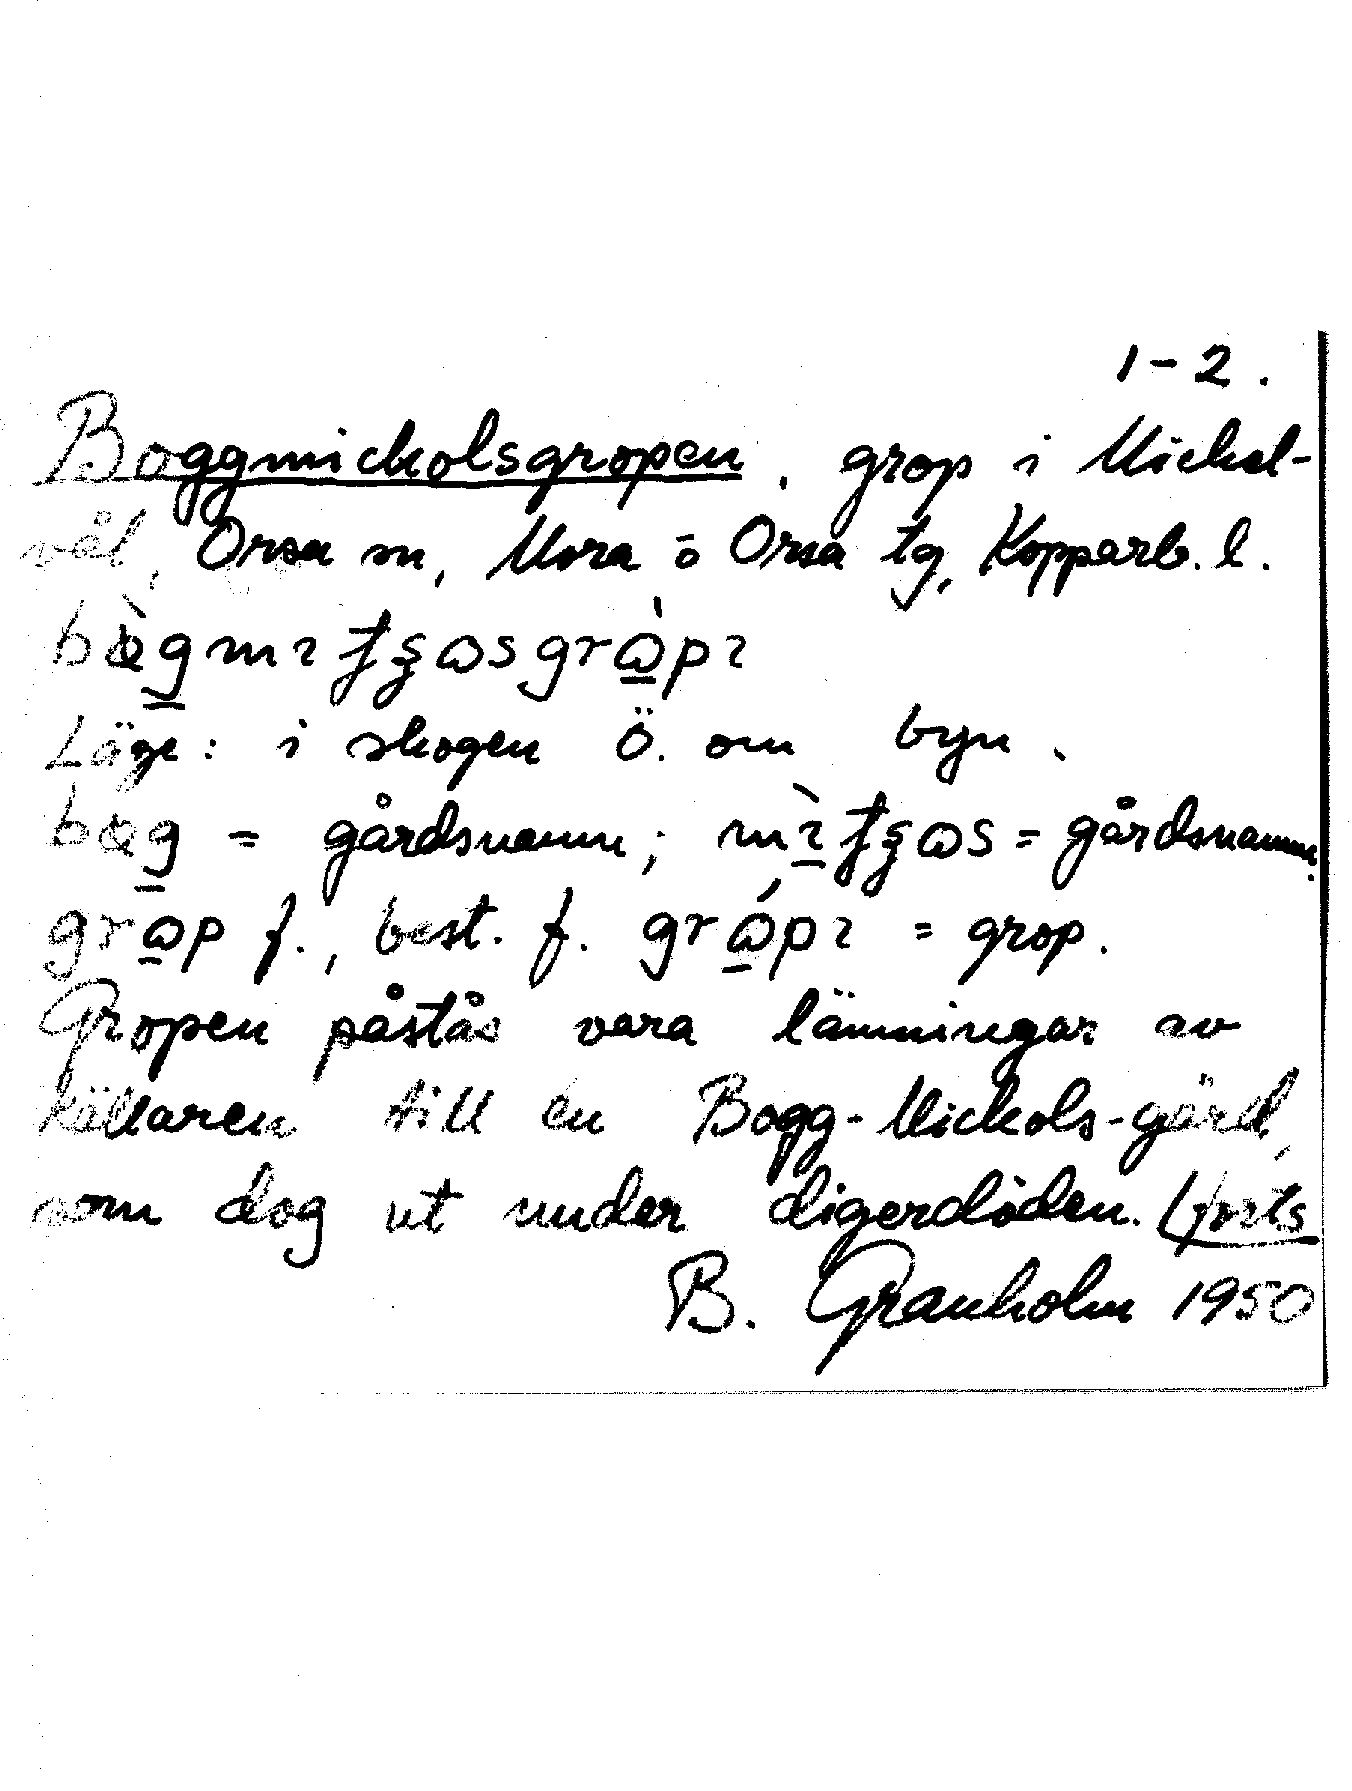 1-2.
Boggmickolsgropen, grop i Mickel-
vål, Orsa sn, Mora o Orsa tg, Kopparb. l.
Läge: i skogen Ö. om byn.
= gårdsnamn; = gårdsnamn.
f., best. f. = grop.
Gropen påstås vara lämningar av
källaren till en Bogg-Mickols-gård,
som dog ut under digerdöden. (forts
B. Granholm 1950